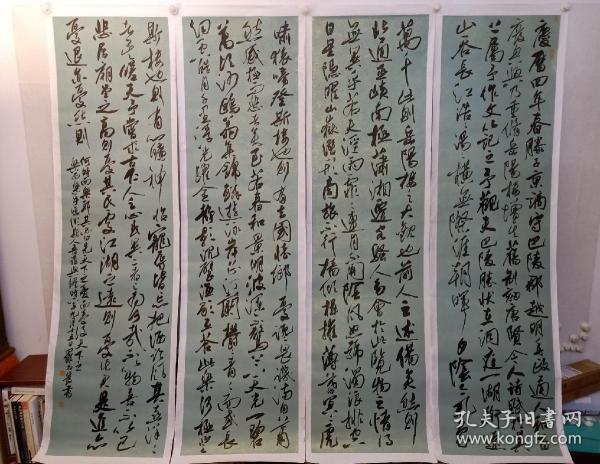 慶曆四年春滕子京謫守巴陵郡越明年政通人和百
廢具興乃重修岳陽樓增其舊制刻唐賢今人詩賦於其
上屬予作文以記之予觀夫巴陵勝狀在洞庭一湖銜遠
山吞長江浩浩湯湯橫無際涯朝暉夕陰氣象
萬千此則岳陽樓之大觀也前人之述備矣然則
北通巫峽南極瀟湘遷客騷人多會於此覽物之情得
無異乎若夫淫雨霏霏連月不開陰風怒號濁浪排空
日星隱曜山岳潛形商旅不行檣傾楫摧薄暮冥冥虎
嘯猿啼登斯樓也則有去國懷鄉憂讒畏譏滿目蕭
然感極而悲者矣至若春和景明波瀾不驚上下天光一碧
萬頃沙鷗翔集錦鱗游泳岸芷汀蘭郁郁青青而或長
煙一空皓月千里浮光躍金靜影沉璧漁歌互答此樂何極登
斯樓也則有心曠神怡寵辱皆忘把酒臨風其喜洋洋
者矣嗟夫予嘗求古仁人之心或異二者之為何哉不以物喜不以己
悲居廟堂之高則憂其民處江湖之遠則憂其君是進亦
憂退亦憂然則
何時而樂耶其必曰先天下之憂而憂後天下之
樂而樂乎噫微斯人吾誰與歸時六年九月十五日
孔夫子旧书网
www.kongfz.com